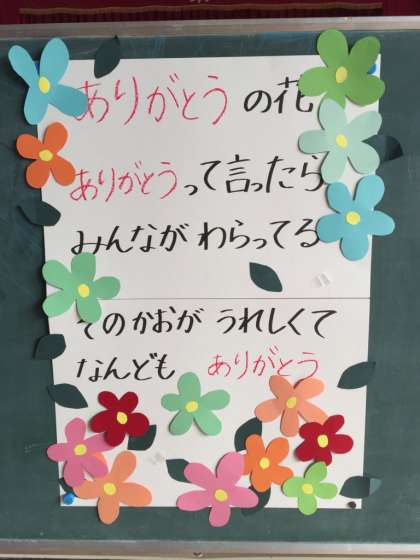 ありがとうの花
ありがとうって言ったら
みんながわらってる
そのかおが うれしくて
なんども ありがとう